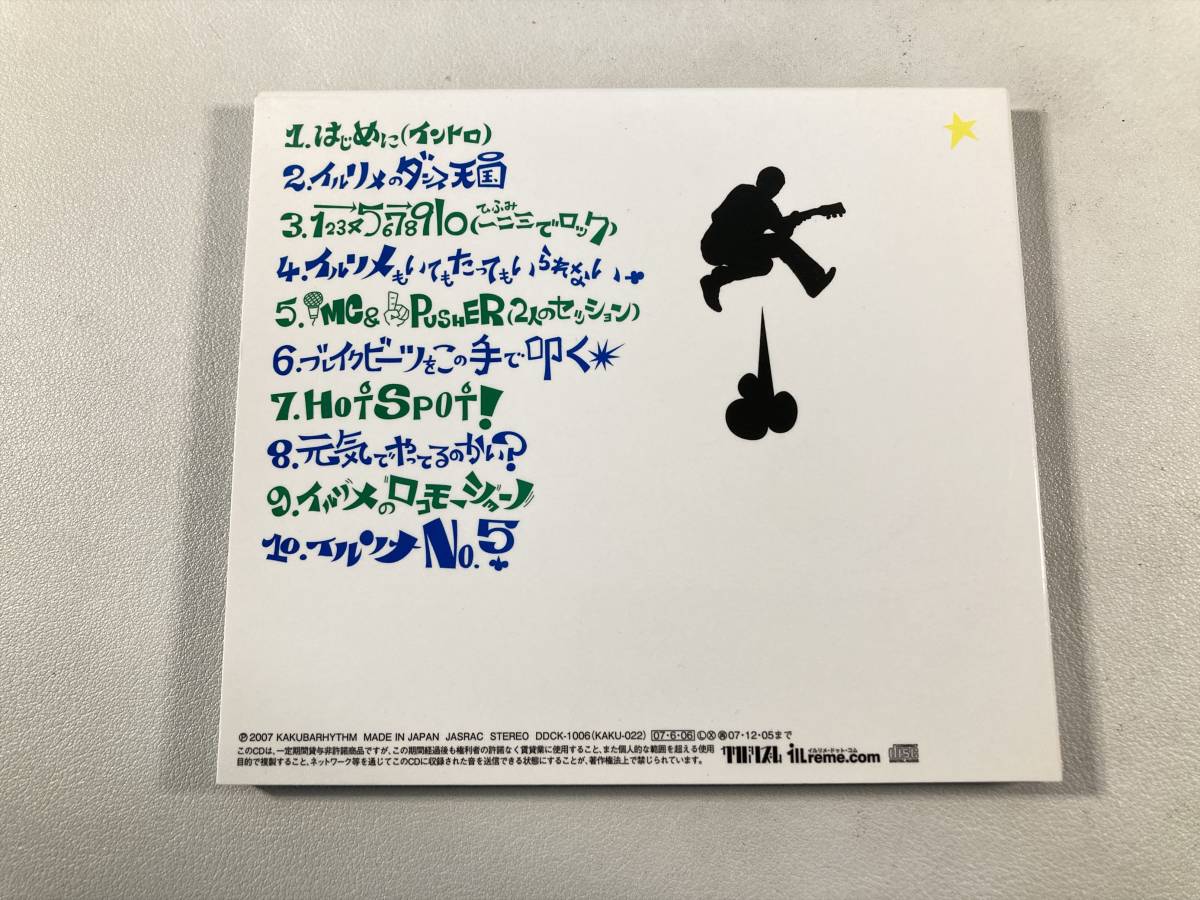 1.はじめに(イントロ)
2.イルリメのダンス天国
3.12345678910(一二三でロック)
ひふみ
4.イルリメもいてもたってもいられない
5.MC&PUSHER(2人のセッション)
6.ブレイクビーツをこの手で叩く
7.HOTSPOT!
8.元気でやってるのかい?
9.イルリメのロコモーション
10.イルリメNo.5
℗2007 KAKUBARHYTHM MADE IN JAPAN JASRAC STEREO DDCK-1006(KAKU-022) 07・6・06 Ⓛ Ⓧ 07・12・05まで
このCDは、一定期間貸与非許諾商品ですが、この期間経過後も権利者の許諾なく賃貸業に使用すること、また個人的な範囲を超える使用
目的で複製すること、ネットワーク等を通じてこのCDに収録された音を送信できる状態にすることが、著作権法上で禁じられています。
イルリメ・ドット・コム
illreme.com